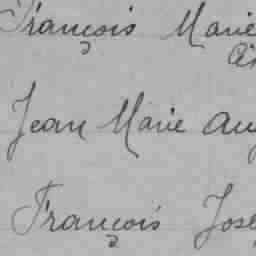 François Marie
Jean Marie Aug
François Jose